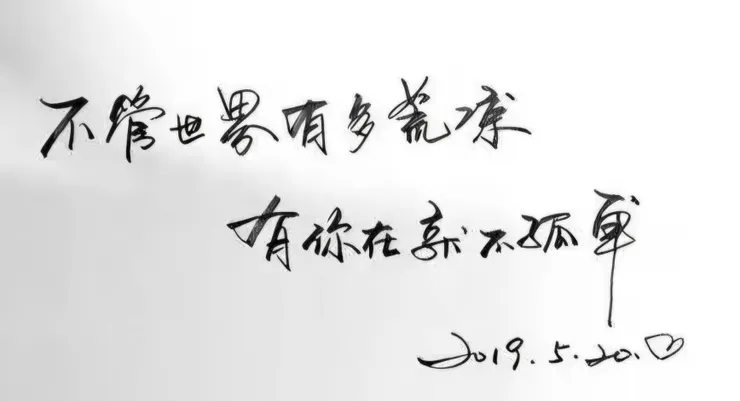 不管世界有多荒凉
有你在就不孤单
2019.5.20.♡